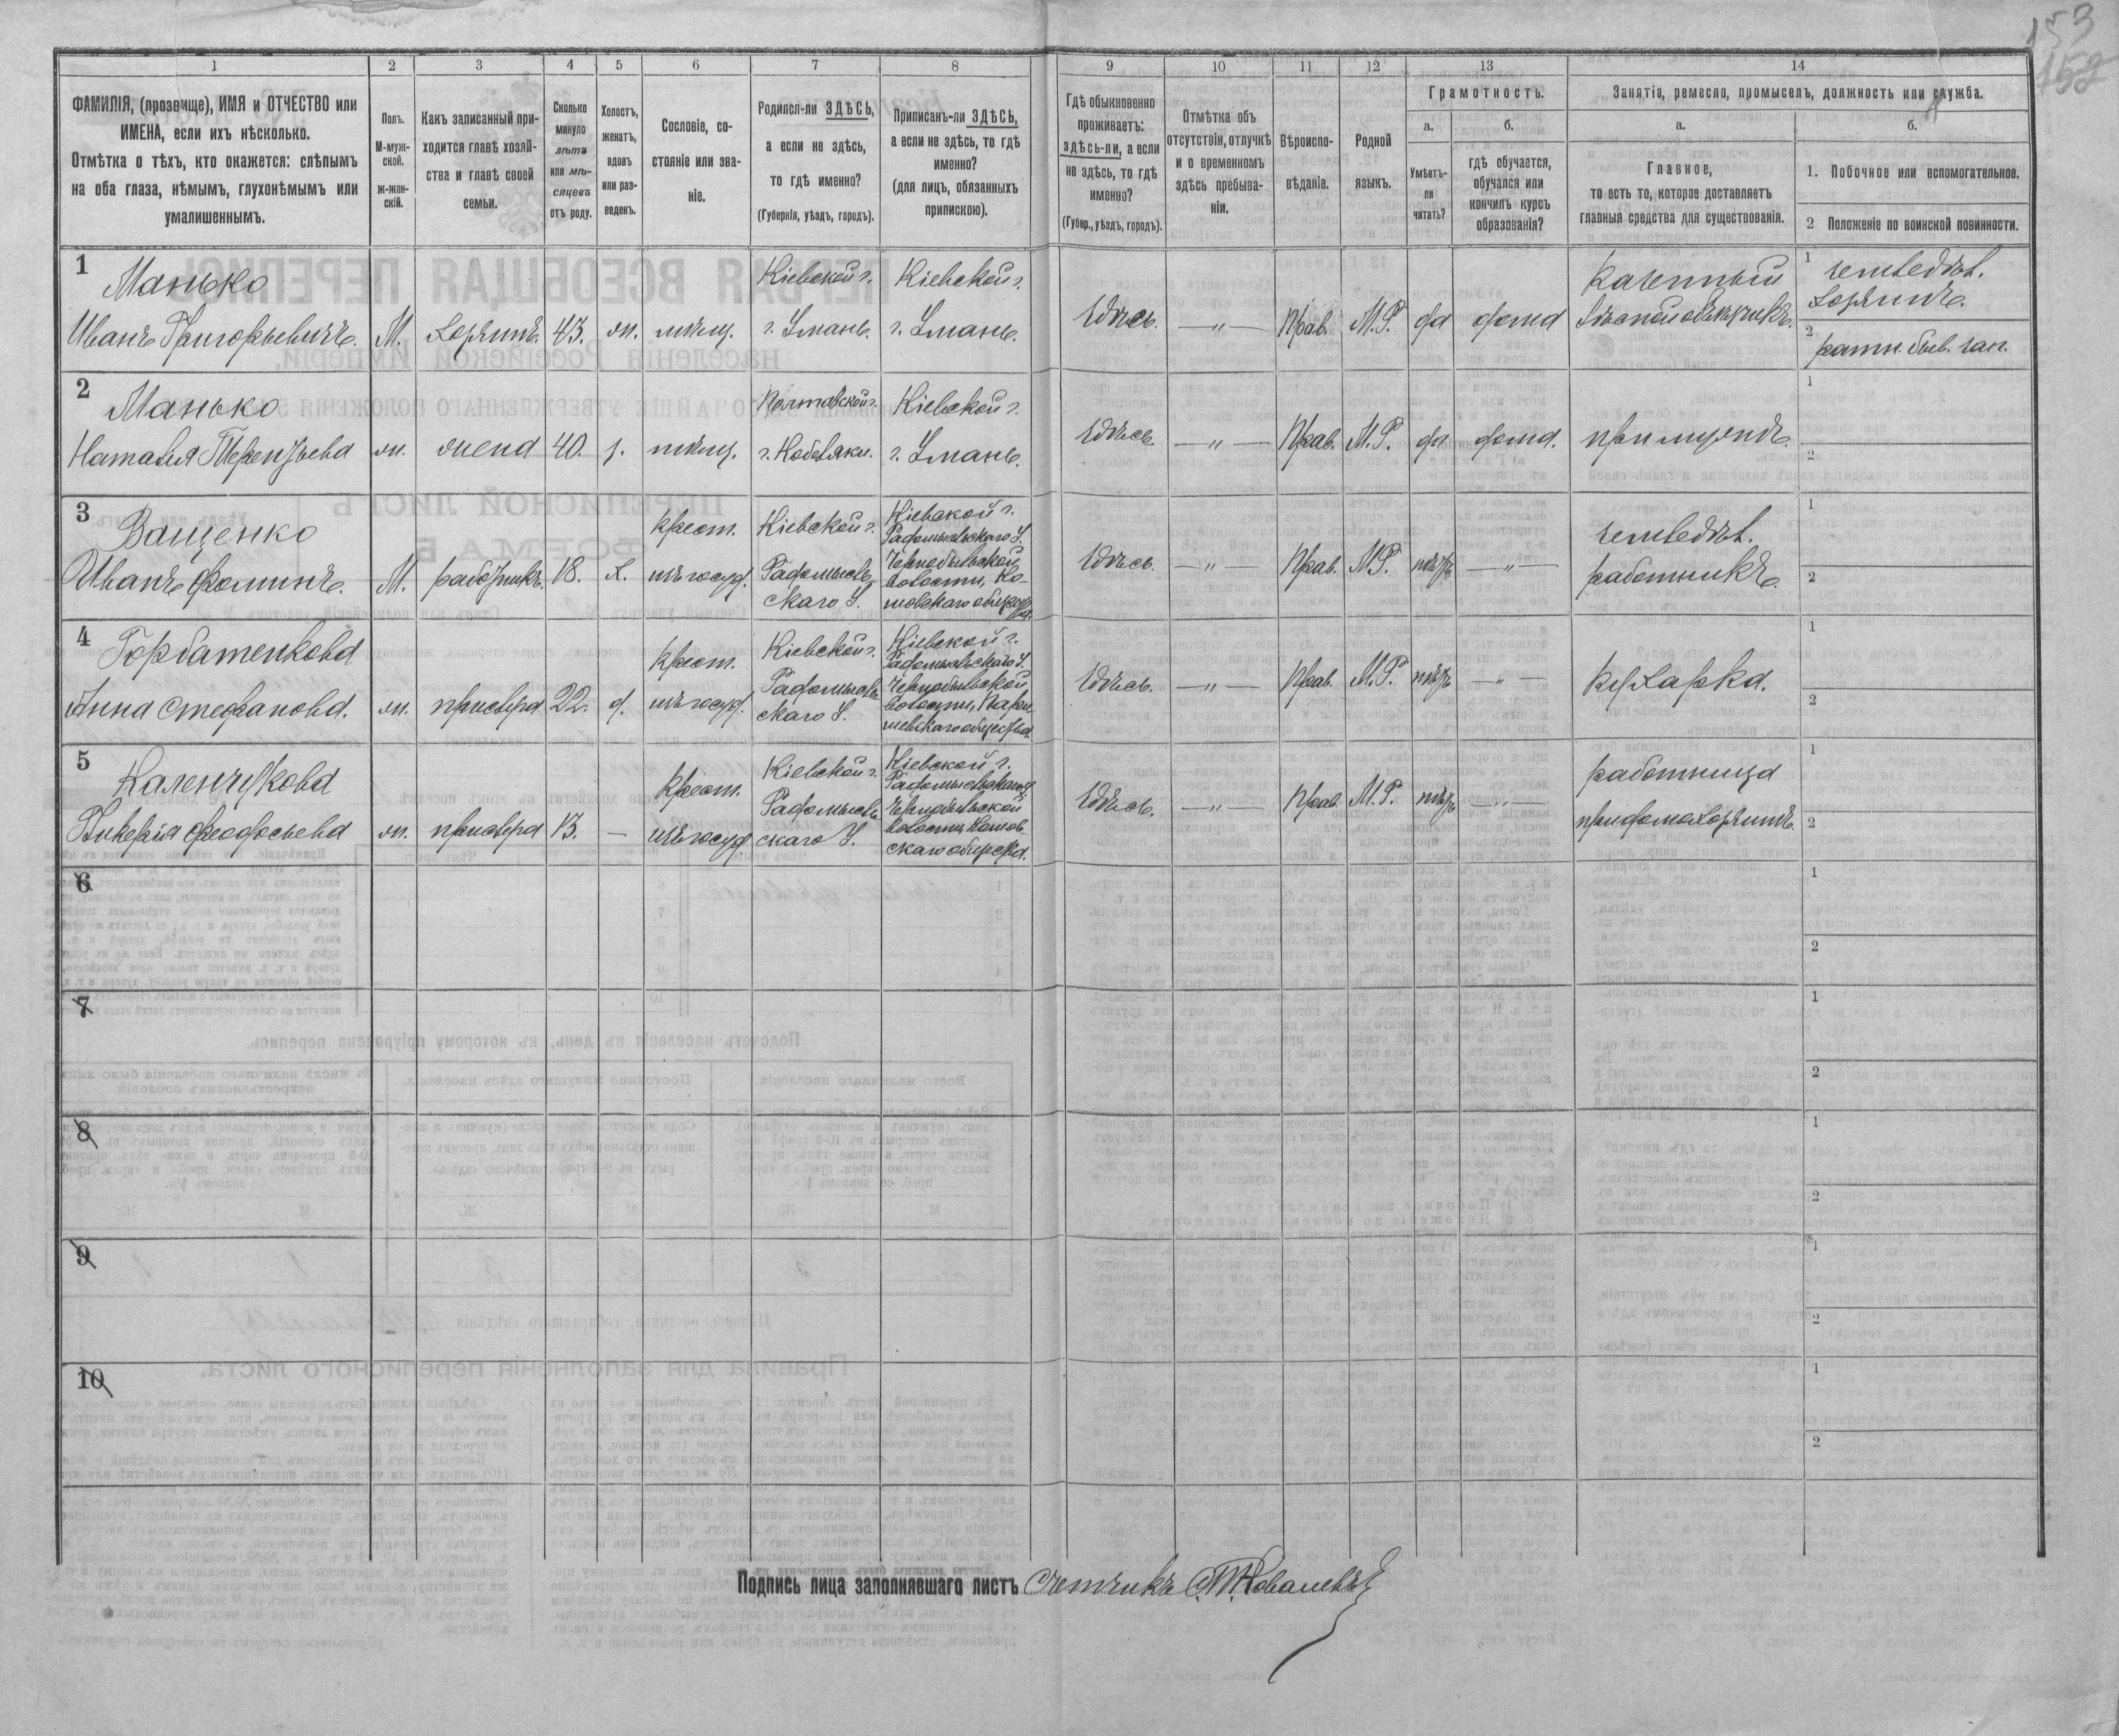 153
152
1 2 3 4 5 6 7 8 9 10 11 12 13 14
ФАМИЛІЯ, (прозвище), ИМЯ и ОТЧЕСТВО или
ИМЕНА, если ихъ нѣсколько.
Отмѣтка о тѣхъ, кто окажется: слѣпымъ
на оба глаза, нѣмымъ, глухонѣмымъ или
умалишеннымъ.
Полъ.
М-муж-
ской.
ж-жен-
скій.
Какъ записанный при-
ходится главѣ хозяй-
ства и главѣ своей
семьи.
Сколько
минуло
лѣтъ
или мѣ-
сяцевъ
отъ роду.
Холостъ,
женатъ,
вдовъ
или раз-
веденъ.
Сословіе, со-
стояніе или зва-
ніе.
Родился-ли ЗДѢСЬ,
а если не здѣсь,
то гдѣ именно?
(Губернія, уѣздъ, городъ).
Приписанъ-ли ЗДѢСЬ,
а если не здѣсь, то гдѣ
именно?
(для лицъ, обязанныхъ
припискою).
Гдѣ обыкновенно
проживаетъ:
здѣсь-ли, а если
не здѣсь, то гдѣ
именно?
(Губер., уѣздъ, городъ).
Отмѣтка объ
отсутствіи, отлучкѣ
и о временномъ
здѣсь пребыва-
ніи.
Вѣроиспо-
вѣданіе.
Родной
языкъ.
Грамотность.
а.
Умѣетъ-
ли
читать?
б.
гдѣ обучается,
обучался или
кончилъ курсъ
образованія?
Занятіе, ремесло, промыселъ, должность или служба.
а.
Главное,
то есть то, которое доставляетъ
главныя средства для существованія.
б.
1. Побочное или вспомогательное.
2 Положеніе по воинской повинности.
1
Манько
Иванъ Григорьевичъ.
М.
хозяинъ.
43.
ж.
мѣщ.
Кіевской г.
г. Умань.
Кіевской г.
г. Умань.
Здѣсь.
— „ —
Прав.
М.Р.
да
дома
Казенный
1
земледѣл.
хозяинъ.
2
ратн. быв. зап.
2
Манько
Наталія Терентьева
ж.
жена
40.
з.
мѣщ.
Полтавской г.
г. Кобеляки.
Кіевской г.
г. Умань.
Здѣсь.
— „ —
Прав.
М.Р.
да
дома.
при мужѣ.
1
2
3
Ващенко
Иванъ Фоминъ.
М.
работникъ.
18.
х.
крест.
изъ госуд.
Кіевской г.
Радомысль-
скаго У.
Кіевской г.
Радомысльскаго У.
Чернобыльской
волости, Ко-
шовскаго общества.
Здѣсь.
— „ —
Прав.
М.Р.
нѣтъ
— „ —
земледѣл.
работникъ.
1
2
4
Горбатенкова
Анна Стефанова.
ж.
прислуга
22.
д.
крест.
изъ госуд.
Кіевской г.
Радомысль-
скаго У.
Кіевской г.
Радомысльскаго У.
Чернобыльской
волости, Пари-
шевскаго общества.
Здѣсь.
— „ —
Прав.
М.Р.
нѣтъ
— „ —
кухарка.
1
2
5
Каленчукова
Гликерія Феодосьева
ж.
прислуга
13.
—
крест.
изъ госуд.
Кіевской г.
Радомысль-
скаго У.
Кіевской г.
Радомысльскаго У
Чернобыльской
волости, Кошов-
скаго общества.
Здѣсь.
— „ —
Прав.
М.Р.
нѣтъ
— „ —
работница
при домохозяинѣ.
1
2
6
1
2
7
1
2
8
1
2
9
1
2
10
1
2
Подпись лица заполнявшаго листъ Счетчикъ